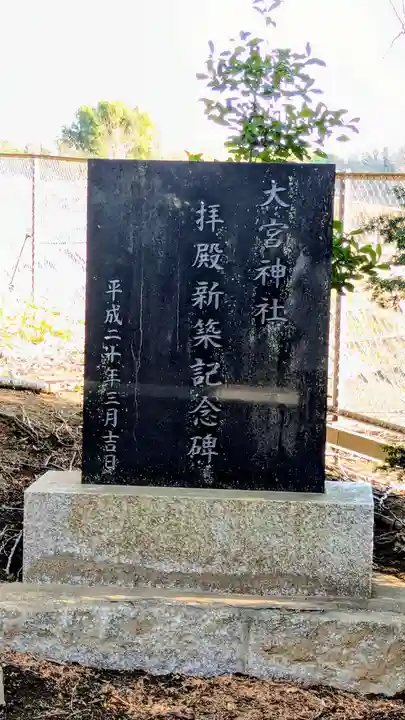 大宮神社
拝殿新築記念碑
平成二十年三月吉日